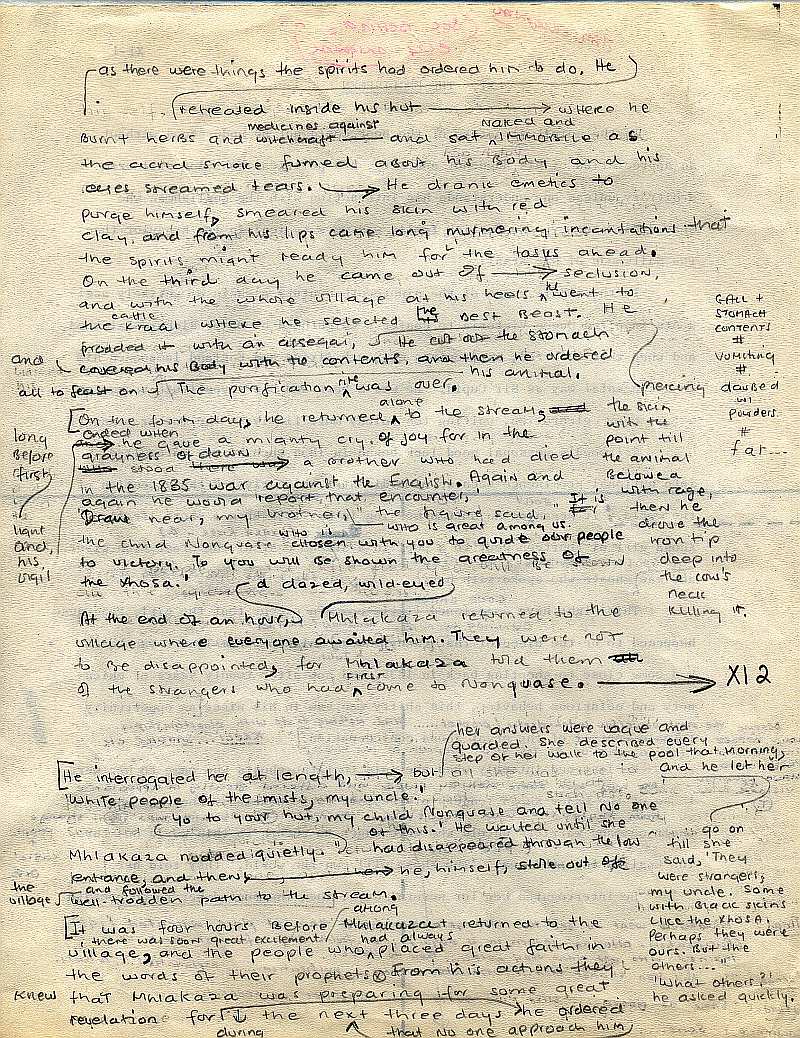 as there were things the spirits had ordered him to do. He
retreated inside his hut where he
medicines against naked and
burnt herbs and witchcraft and sat immobile as
the acrid smoke fumed about his body and his
eyes streamed tears. He drank emetics to
purge himself, smeared his skin with red
clay, and from his lips came long murmering incantations that
the spirits might ready him for the tasks ahead.
On the third day he came out of seclusion,
and with the whole village at his heels went to
cattle
the kraal where he selected his best beast. He
prodded it with an assegai, He cut out the stomach
and covered his body with the contents, and then he ordered
all to feast on his animal.
The purification rite was over.
piercing
the skin
with the
point till
the animal
bellowed
with rage,
then he
drove the
iron tip
deep into
the cow's
neck
killing it.
GALL +
STOMACH
contents
#
vomiting
#
daubed
w/
powders.
#
fat...
alone
On the fourth day, he returned to the stream,
ended when
he gave a mighty cry of joy for in the
grayness of dawn
stood a brother who had died
in the 1835 war against the English. Again and
again he would report that encounter,
'Draw near, my brother,' the figure said, "It is
who is who is great among us.
the child Nonquase chosen with you to guide our people
to victory. To you will be shown the greatness of
the Xhosa.'
long
before
first
light
and,
his
vigil
a dazed, wild-eyed
At the end of an hour, Mhlakaza returned to the
village where everyone awaited him. They were not
to be disappointed, for Mhlakaza told them
first
of the strangers who had come to Nonquase. XI 2
her answers were vague and
guarded. She described every
step of her walk to the pool that morning,
and he let her
He interrogated her at length, but
go on
till she
said, 'They
were strangers,
my uncle. Some
with black skins
like the Xhosa,
Perhaps they were
ours. But the
others..."
'What others?'
he asked quickly.
'White people of the mists, my uncle.'
'Go to your hut, my child Nonquase and tell no one
of this.' He waited until she
Mhlakaza nodded quietly. had disappeared through the low
entrance, and then he, himself, stole out of
and followed the
the village's well-trodden path to the stream.
among
It was four hours before Mhlakaza returned to the
there was soon great excitement had always
village, and the people who placed great faith in
the words of their prophets. From his actions they
knew that Mhlakaza was preparing for some great
revelation for the next three days he ordered
during that no one approach him